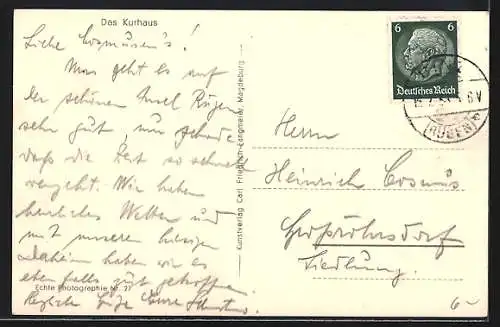 Das Kurhaus
Liebe Cosmusen's!
Mir geht es auf
der schönen Insel Rügen
sehr gut, nur schade
daß die Zeit so schnell
vergeht. Wir haben
herrliches Wetter und
mit unserem
Daheim haben wir es
eben falls gut getroffen.
Herzliche Grüße
Echte Photographie Nr. 27
Kunstverlag Carl Friedrich Fangmeier, Magdeburg
6 6
Deutsches Reich
(RÜGEN)
Herrn
Heinrich Cosmus
Großröhrsdorf
Siedlung.
6-